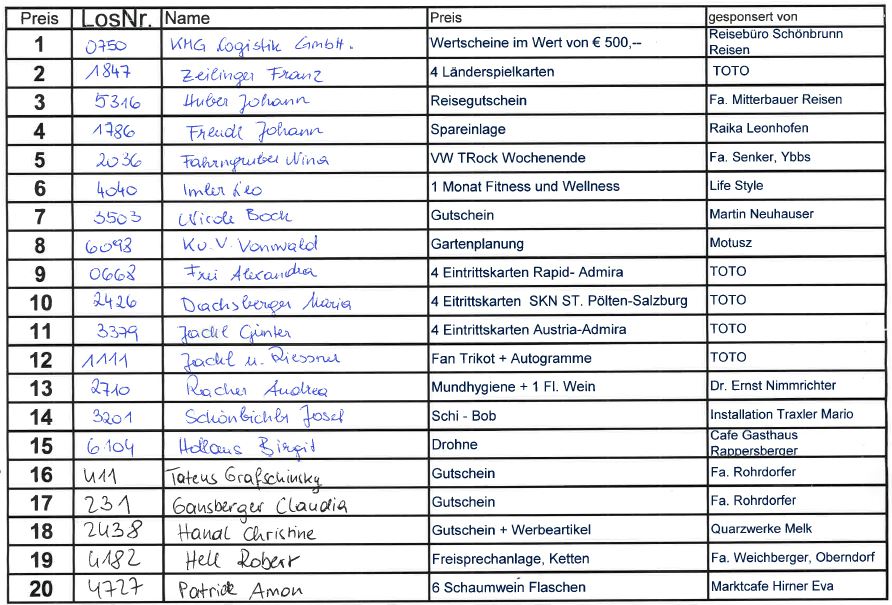 Preis LosNr. Name Preis gesponsert von
1 0750 KMG Logistik GmbH. Wertscheine im Wert von € 500,-- Reisebüro Schönbrunn
Reisen
2 1847 Zeilinger Franz 4 Länderspielkarten TOTO
3 5316 Huber Johann Reisegutschein Fa. Mitterbauer Reisen
4 1786 Freudl Johann Spareinlage Raika Leonhofen
5 2036 Fahrngruber Nina VW TRock Wochenende Fa. Senker, Ybbs
6 4040 Imler Leo 1 Monat Fitness und Wellness Life Style
7 3503 Nicole Bock Gutschein Martin Neuhauser
8 6098 Vonwald Gartenplanung Motusz
9 0668 Frei Alexandra 4 Eintrittskarten Rapid- Admira TOTO
10 2426 Drachsberger Maria 4 Eitrittskarten SKN ST. Pölten-Salzburg TOTO
11 3379 Jackl Günter 4 Eintrittskarten Austria-Admira TOTO
12 1111 Jackl u. Riessner Fan Trikot + Autogramme TOTO
13 2710 Racher Andrea Mundhygiene + 1 Fl. Wein Dr. Ernst Nimmrichter
14 3201 Schönbichler Josef Schi - Bob Installation Traxler Mario
15 6104 Hollaus Birgit Drohne Cafe Gasthaus
Rappersberger
16 411 Grafschinsky Gutschein Fa. Rohrdorfer
17 231 Gansberger Claudia Gutschein Fa. Rohrdorfer
18 2438 Handl Christine Gutschein + Werbeartikel Quarzwerke Melk
19 4182 Hell Robert Freisprechanlage, Ketten Fa. Weichberger, Oberndorf
20 4727 Patrick Amon 6 Schaumwein Flaschen Marktcafe Hirner Eva